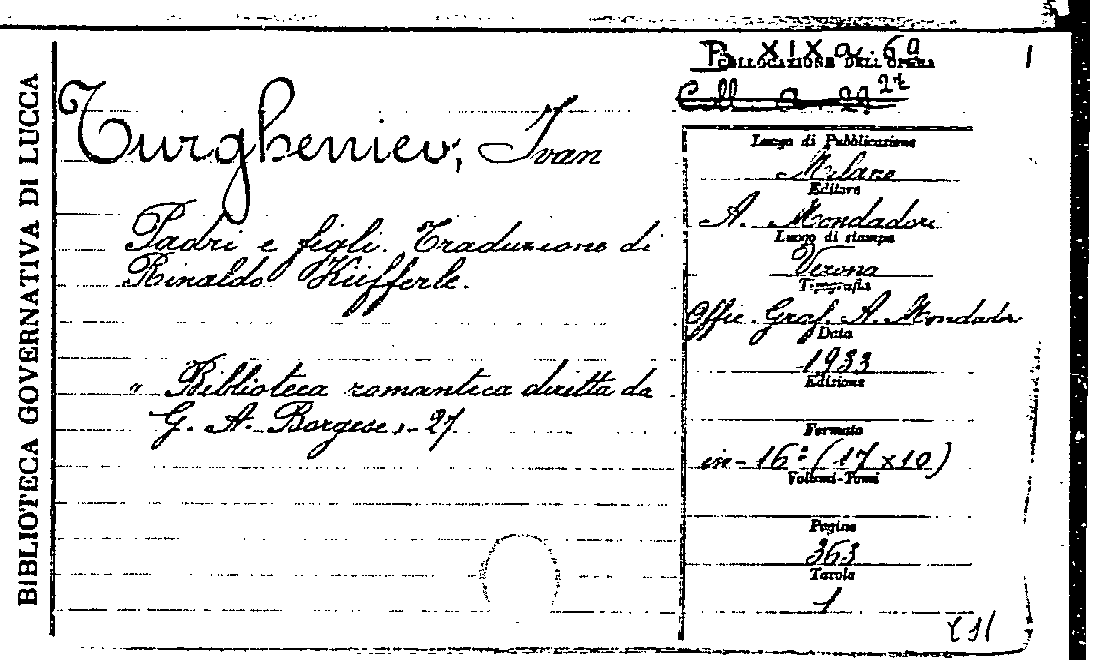 BIBLIOTECA GOVERNATIVA DI LUCCA
Turgheniev, Ivan
Padri e figli. Traduzione di
Rinaldo Küfferle.
" Biblioteca romantica diretta da
G. A. Borgese "- 27.
B. XIX a. 69
COLLOCAZIONE DELL'OPERA
1
Coll. a. 29 27
Luogo di Pubblicazione
Milano
Editore
A. Mondadori
Luogo di stampa
Verona
Tipografia
Offic. Graf. A. Mondador
Data
1933
Edizione
Formato
in-16º (17 x 10)
Volumi-Tomi
Pagine
363
Tavole
1